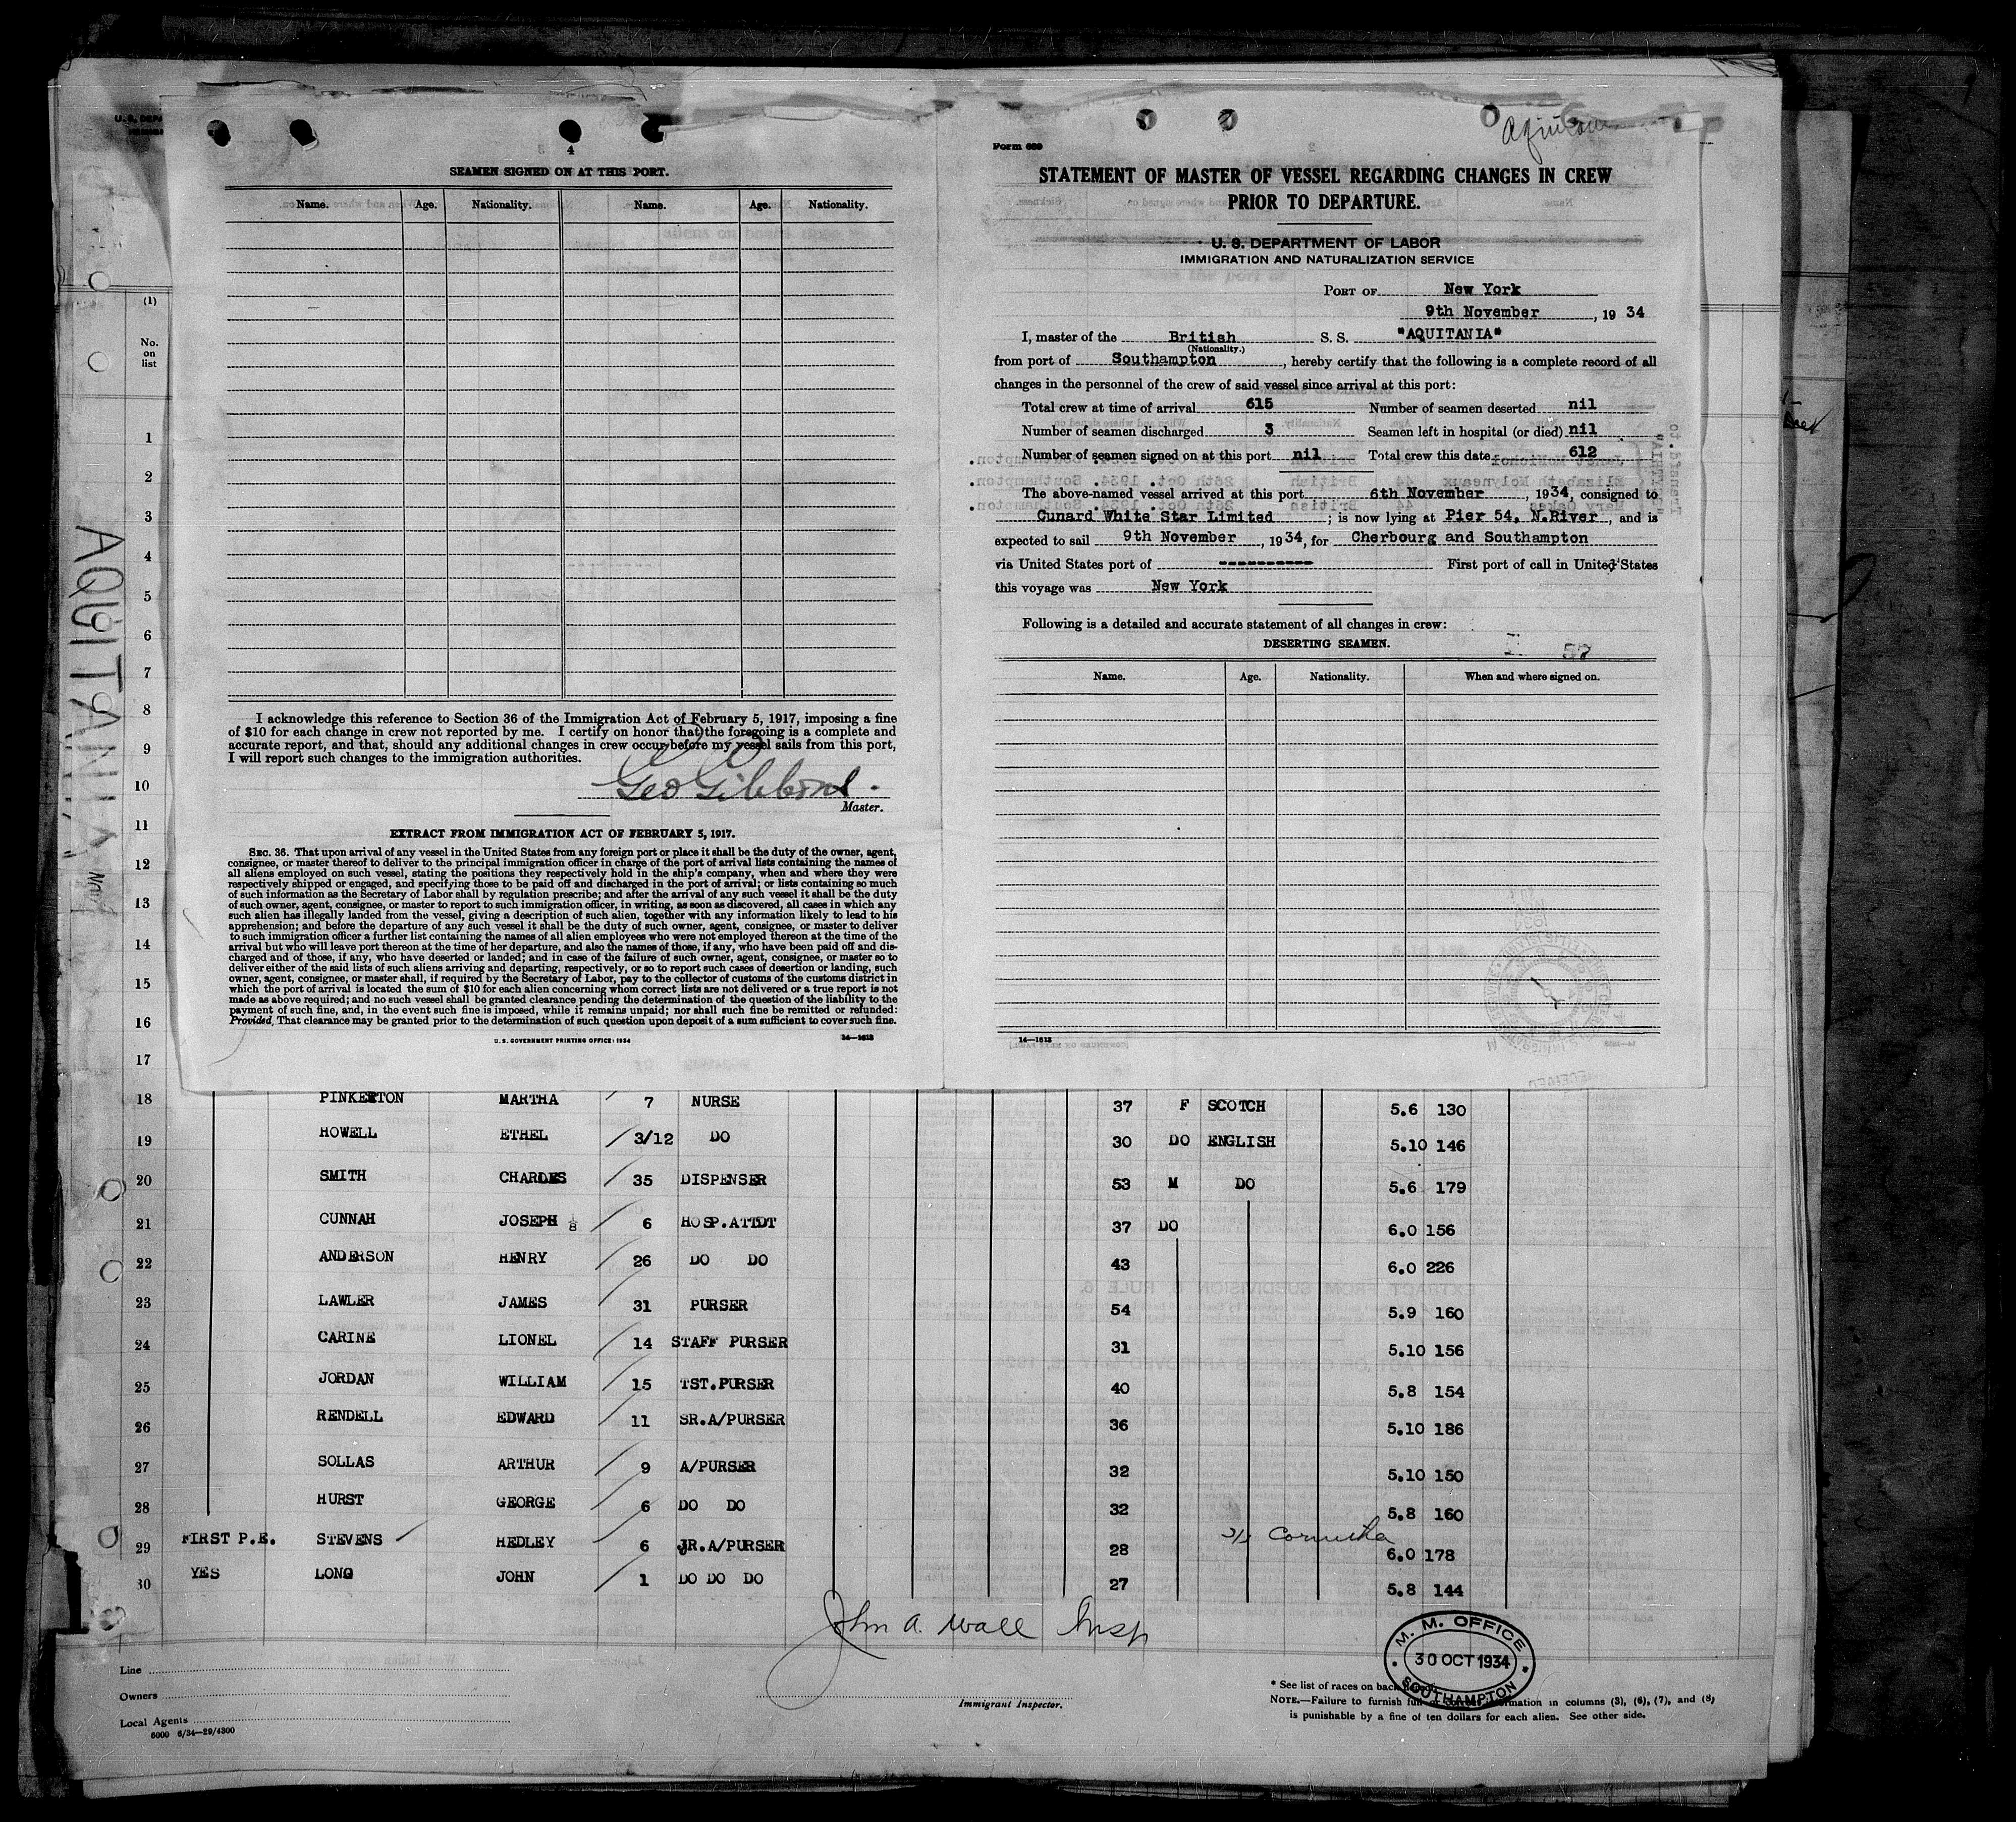 U. S. DEPA
4
SEAMEN SIGNED ON AT THIS PORT.
Name. Age. Nationality. Name. Age. Nationality.
I acknowledge this reference to Section 36 of the Immigration Act of February 5, 1917, imposing a fine
of $10 for each change in crew not reported by me. I certify on honor that the foregoing is a complete and
accurate report, and that, should any additional changes in crew occur before my vessel sails from this port,
I will report such changes to the immigration authorities.
Geo Gibbons.
Master.
EXTRACT FROM IMMIGRATION ACT OF FEBRUARY 5, 1917.
SEC. 36. That upon arrival of any vessel in the United States from any foreign port or place it shall be the duty of the owner, agent,
consignee, or master thereof to deliver to the principal immigration officer in charge of the port of arrival lists containing the names of
all aliens employed on such vessel, stating the positions they respectively hold in the ship's company, when and where they were
respectively shipped or engaged, and specifying those to be paid off and discharged in the port of arrival; or lists containing so much
of such information as the Secretary of Labor shall by regulation prescribe; and after the arrival of any such vessel it shall be the duty
of such owner, agent, consignee, or master to report to such immigration officer, in writing, as soon as discovered, all cases in which any
such alien has illegally landed from the vessel, giving a description of such alien, together with any information likely to lead to his
apprehension; and before the departure of any such vessel it shall be the duty of such owner, agent, consignee, or master to deliver
to such immigration officer a further list containing the names of all alien employees who were not employed thereon at the time of the
arrival but who will leave port thereon at the time of her departure, and also the names of those, if any, who have been paid off and dis-
charged and of those, if any, who have deserted or landed; and in case of the failure of such owner, agent, consignee, or master so to
deliver either of the said lists of such aliens arriving and departing, respectively, or so to report such cases of desertion or landing, such
owner, agent, consignee, or master shall, if required by the Secretary of Labor, pay to the collector of customs of the customs district in
which the port of arrival is located the sum of $10 for each alien concerning whom correct lists are not delivered or a true report is not
made as above required; and no such vessel shall be granted clearance pending the determination of the question of the liability to the
payment of such fine, and, in the event such fine is imposed, while it remains unpaid; nor shall such fine be remitted or refunded:
Provided, That clearance may be granted prior to the determination of such question upon deposit of a sum sufficient to cover such fine.
U. S. GOVERNMENT PRINTING OFFICE: 1934 14—1613
Form 689
STATEMENT OF MASTER OF VESSEL REGARDING CHANGES IN CREW
PRIOR TO DEPARTURE.
U. S. DEPARTMENT OF LABOR
IMMIGRATION AND NATURALIZATION SERVICE
PORT OF New York
9th November, 19 34
I, master of the British S. S. "AQUITANIA"
(Nationality.)
from port of Southampton, hereby certify that the following is a complete record of all
changes in the personnel of the crew of said vessel since arrival at this port:
Total crew at time of arrival 615 Number of seamen deserted nil
Number of seamen discharged 3 Seamen left in hospital (or died) nil
Number of seamen signed on at this port nil Total crew this date 612
The above-named vessel arrived at this port 6th November, 1934, consigned to
Cunard White Star Limited; is now lying at Pier 54, N.River, and is
expected to sail 9th November, 1934, for Cherbourg and Southampton
via United States port of ---------- First port of call in United States
this voyage was New York
Following is a detailed and accurate statement of all changes in crew:
DESERTING SEAMEN.
57
Name. Age. Nationality. When and where signed on.
14—1613
AQUITANIA Nov
(1)
No.
on
list
1
2
3
4
5
6
7
8
9
10
11
12
13
14
15
16
17
18 PINKERTON MARTHA 7 NURSE 37 F SCOTCH 5.6 130
19 HOWELL ETHEL 3/12 DO 30 DO ENGLISH 5.10 146
20 SMITH CHARLES 35 DISPENSER 53 M DO 5.6 179
21 CUNNAH JOSEPH 6 HOSP.ATTDT 37 DO 6.0 156
22 ANDERSON HENRY 26 DO DO 43 6.0 226
23 LAWLER JAMES 31 PURSER 54 5.9 160
24 CARINE LIONEL 14 STAFF PURSER 31 5.10 156
25 JORDAN WILLIAM 15 TST.PURSER 40 5.8 154
26 RENDELL EDWARD 11 SR.A/PURSER 36 5.10 186
27 SOLLAS ARTHUR 9 A/PURSER 32 5.10 150
28 HURST GEORGE 6 DO DO 32 5.8 160
29 FIRST P.E. STEVENS HEDLEY 6 JR.A/PURSER 28 6.0 178
30 YES LONG JOHN 1 DO DO DO 27 5.8 144
John A. Wall Insp
Immigrant Inspector.
M. M. OFFICE
30 OCT 1934
SOUTHAMPTON
Line
Owners
Local Agents
5000 6/34—29/4300
* See list of races on back
NOTE.—Failure to furnish full or correct information in columns (3), (6), (7), and (8)
is punishable by a fine of ten dollars for each alien. See other side.